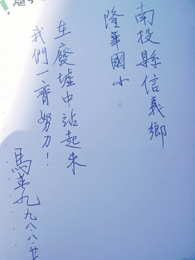 南投縣信義鄉
隆華國小
在廢墟中站起來
我們一齊努力!
馬英九 九八、八、廿